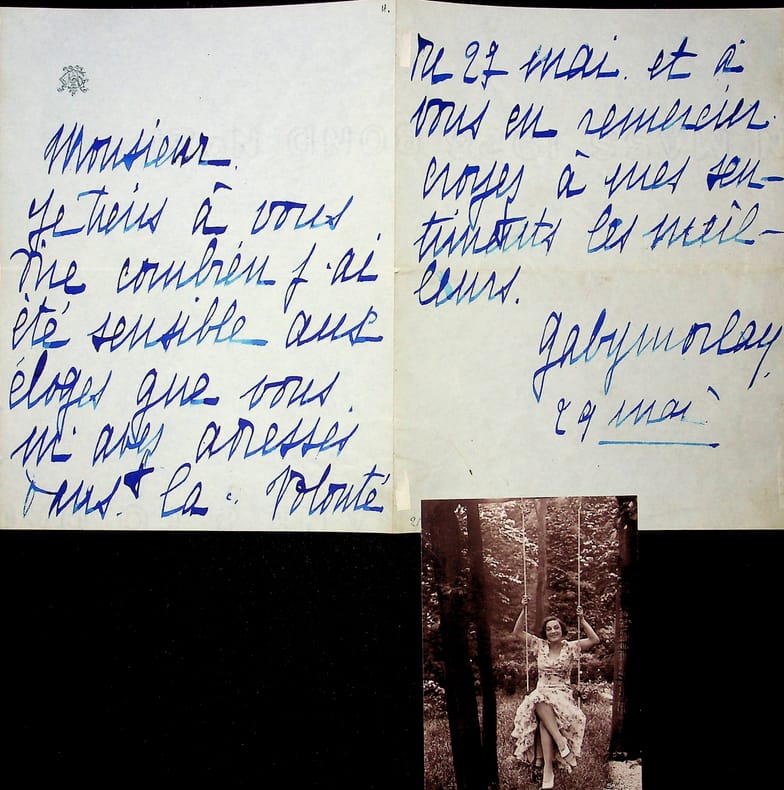 Monsieur.
Je tiens à vous
dire combien j'ai
été sensible aux
éloges que vous
m'avez adressés
dans la "Volonté
du 27 mai. et à
vous en remercier.
croyez à mes sen-
timents les meil-
leurs.
gaby morlay
29 mai